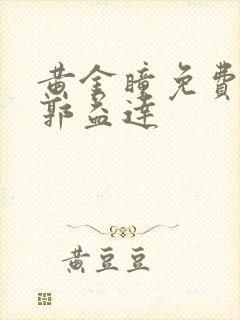 黄金瞳免費
郭益達
黄豆豆